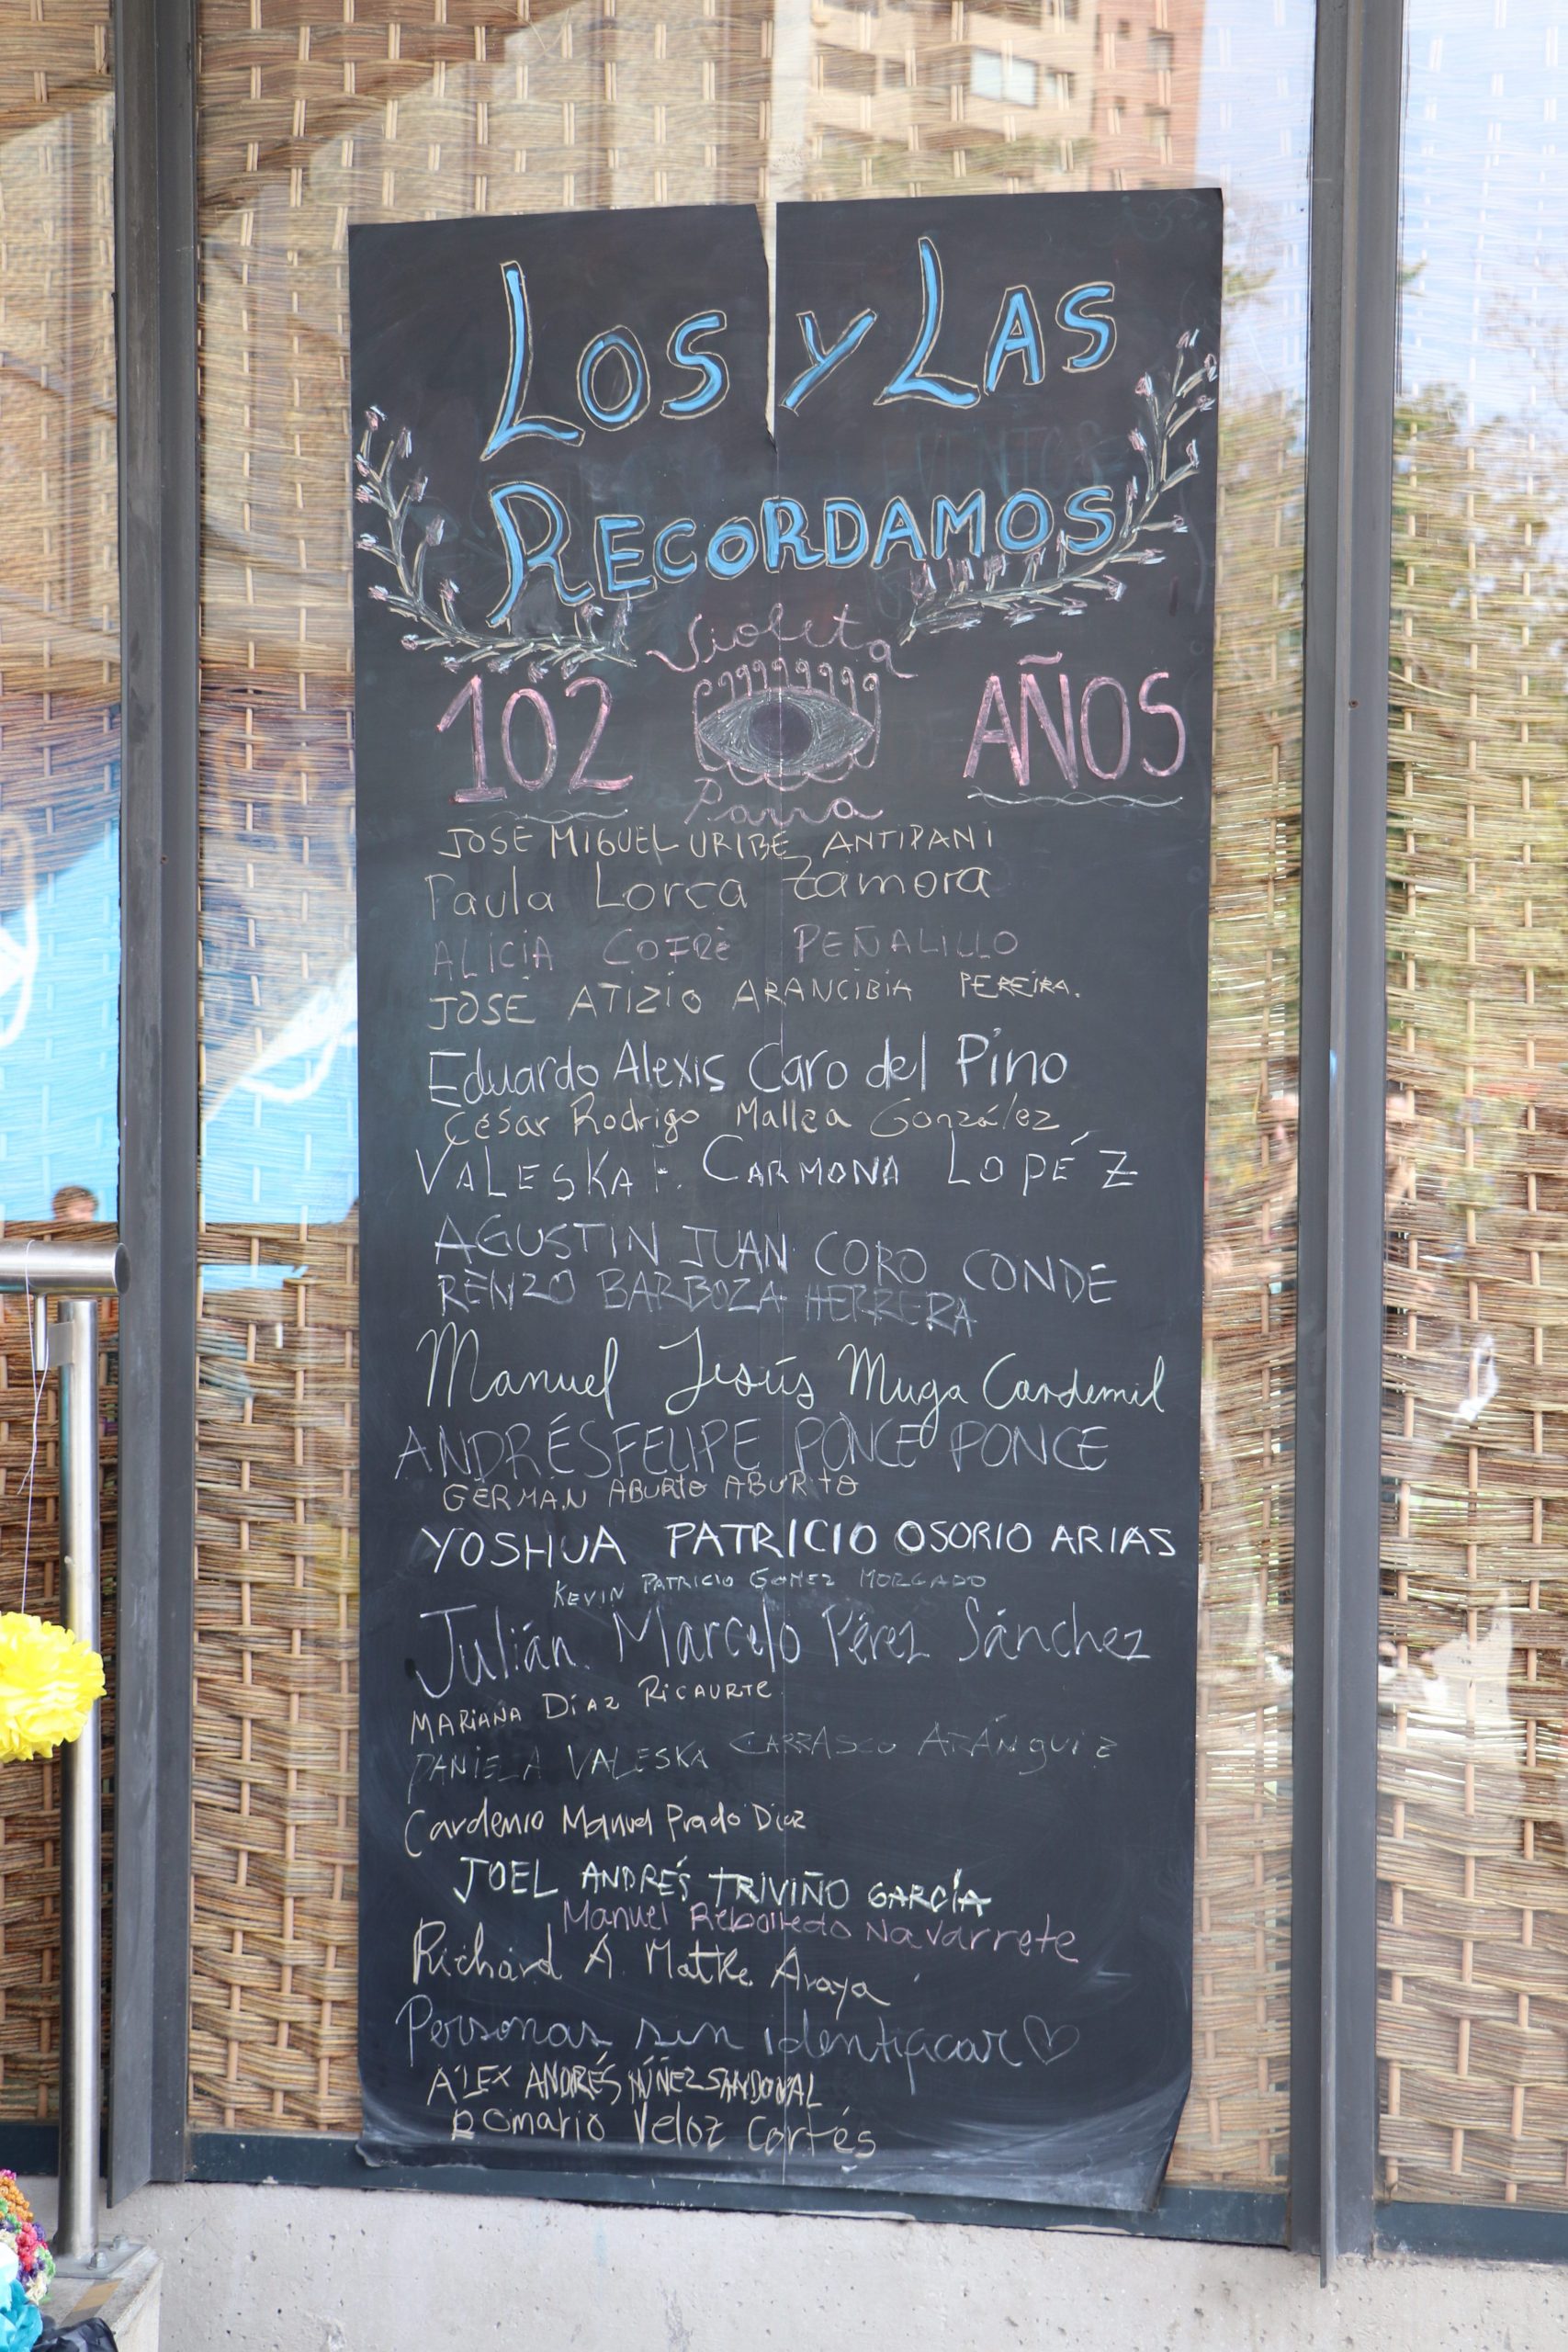 LOS Y LAS
RECORDAMOS
Violeta
102 AÑOS
Parra
JOSE MIGUEL URIBE ANTIPANI
Paula Lorca Zamora
ALICIA COFRÈ PEÑALILLO
JOSÉ ATIZIO ARANCIBIA PEREIRA.
Eduardo Alexis Caro del Pino
César Rodrigo Mallea González
VALESKA F. CARMONA LOPÉZ
AGUSTIN JUAN CORO CONDE
RENZO BARBOZA HERRERA
Manuel Jesús Muga Cardemil
ANDRÉS FELIPE PONCE PONCE
GERMÁN ABURTO ABURTO
YOSHUA PATRICIO OSORIO ARIAS
KEVIN PATRICIO GOMEZ MORGADO
Julián Marcelo Pérez Sánchez
MARIANA DíAZ RICAURTE
DANIELA VALESKA CARRASCO ARÁNguiz
Cardenio Manuel Prado Diaz
JOEL ANDRÉS TRIVIÑO GARCÍA
Manuel Rebolledo Navarrete
Richard A. Matke Araya
Personas sin identificar
ALEX ANDRÉS NÚÑEZ SANDOVAL
Romario Veloz Cortés